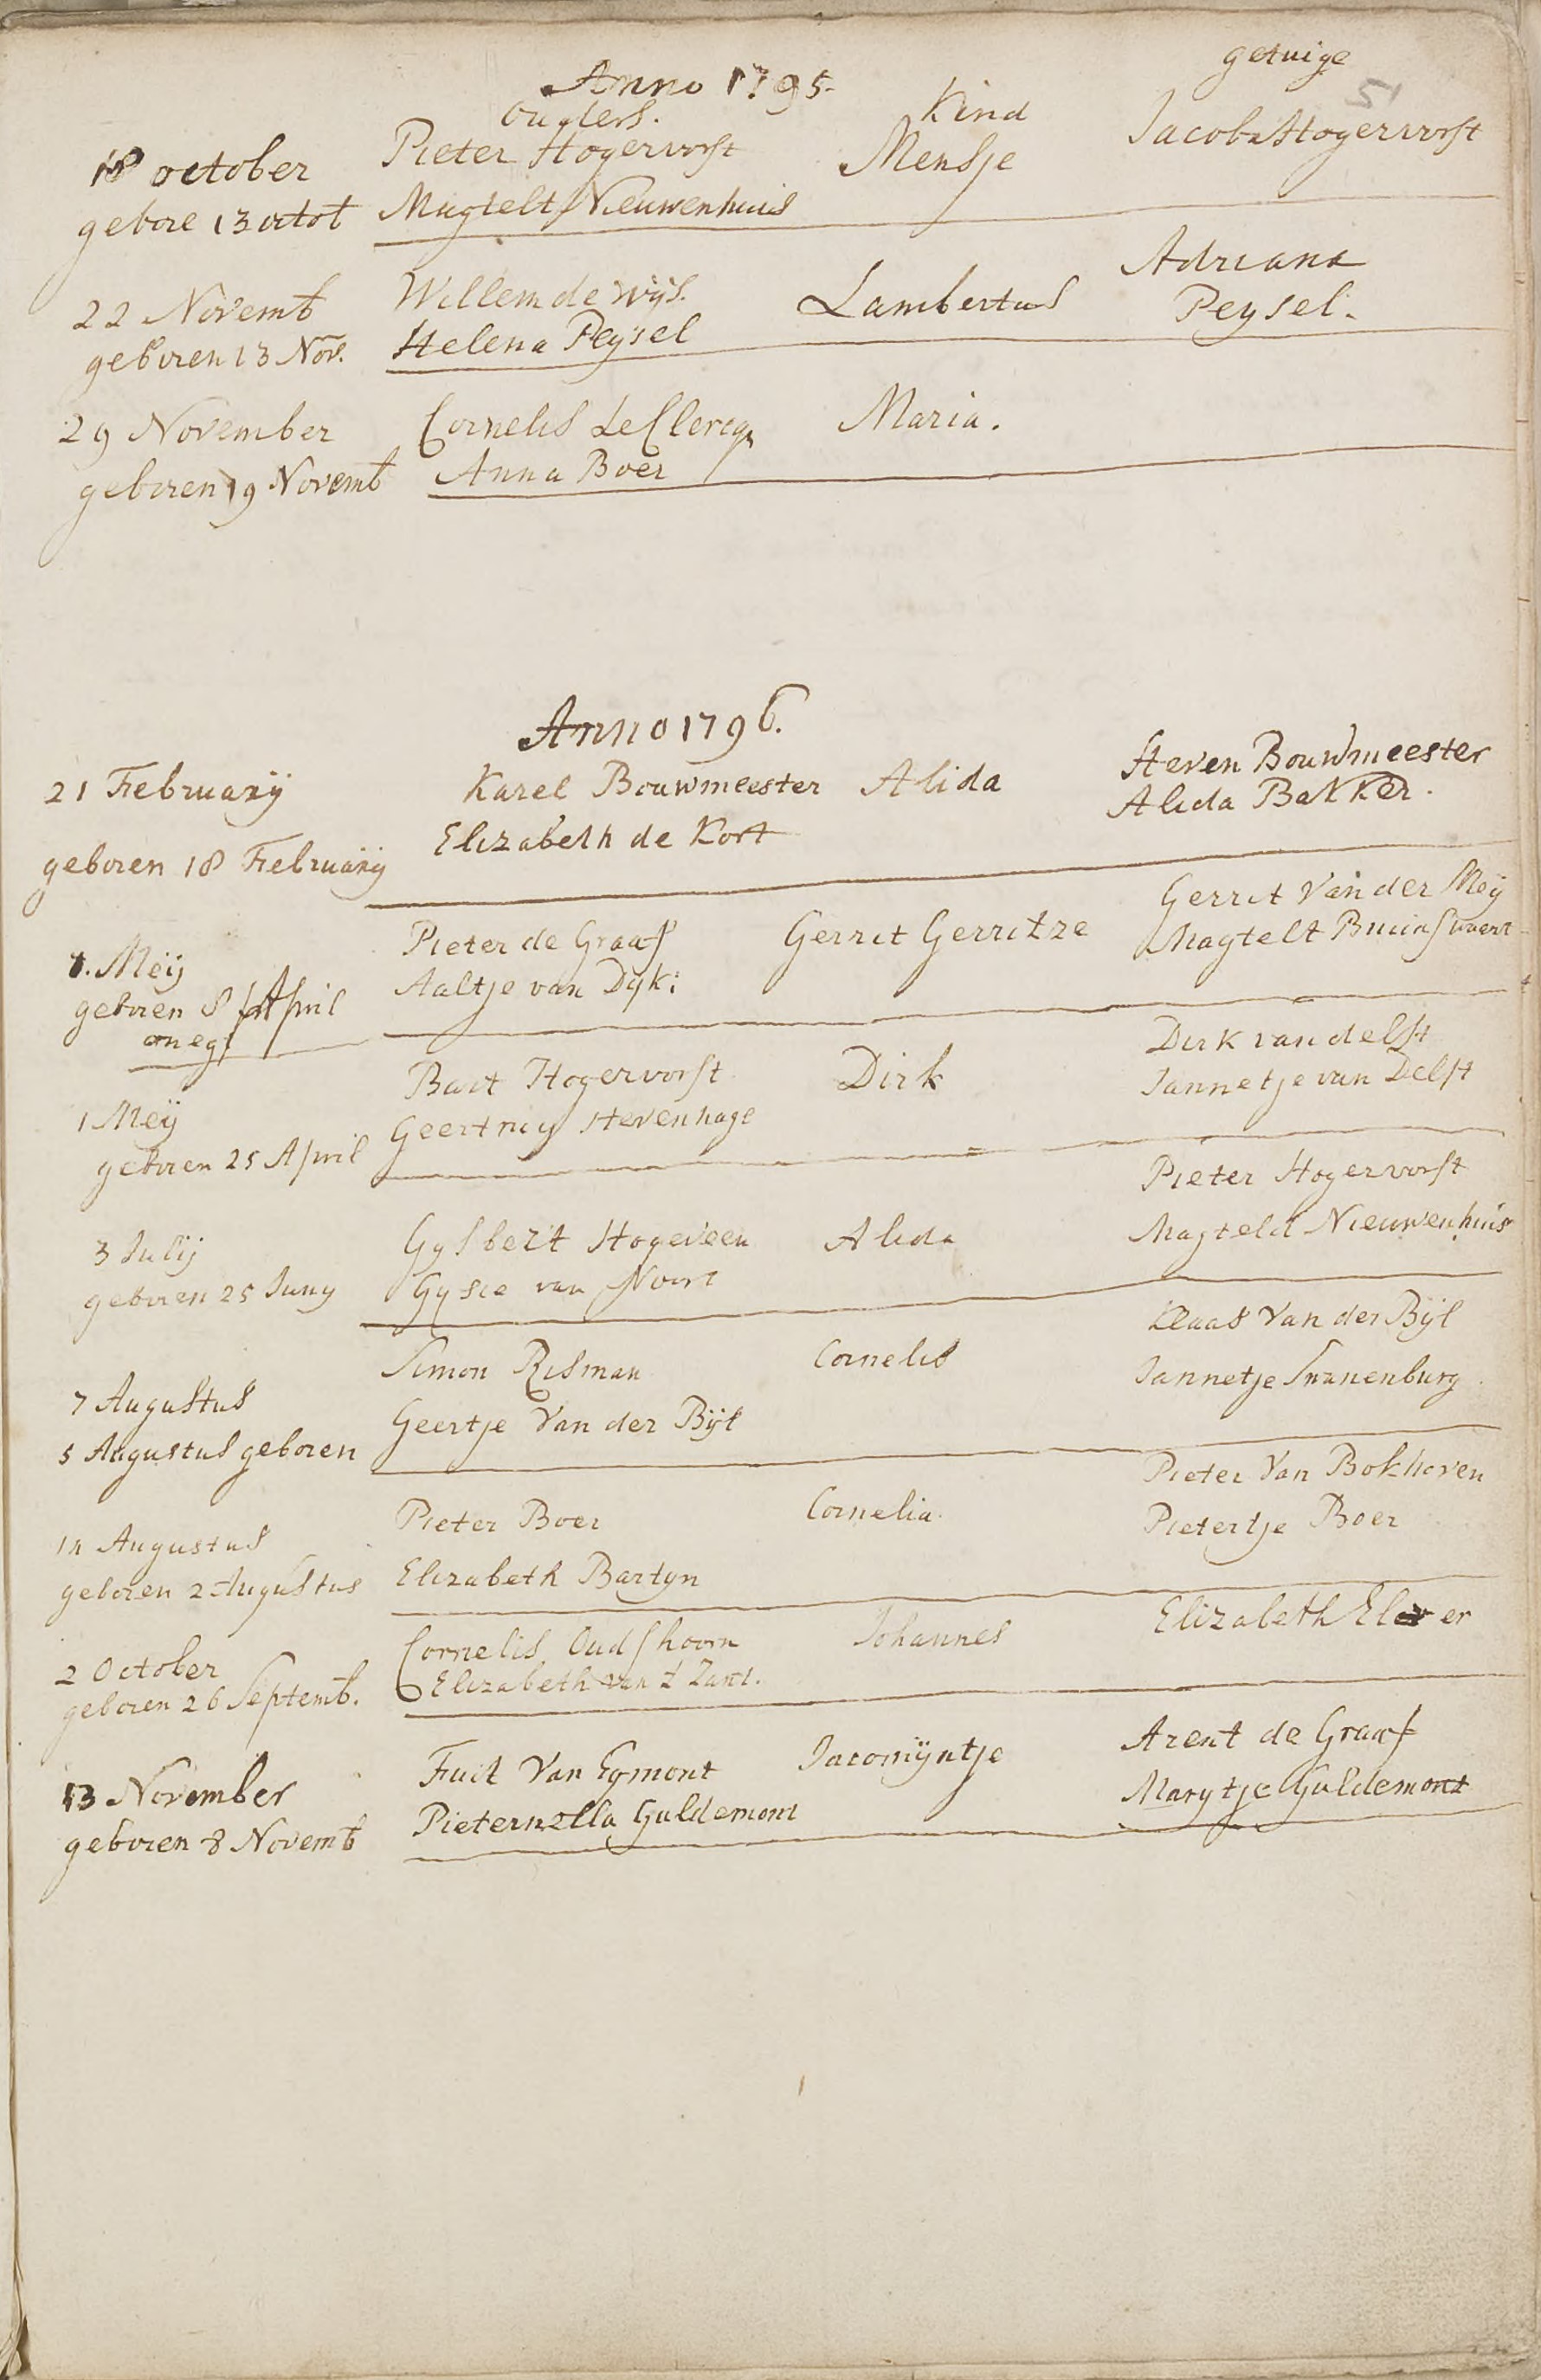 getuige
51
Anno 1795.
Ouders. Kind
18 october Pieter Hogervorst Mensje Jacoba Hogervorst
gebore 13 octob Magtelt Nieuwenhuis
22 Novemb Willem de Wijs. Lambertus Adriana
geboren 13 Nov. Helena Peysel Peysel.
29 November Cornelis Le Clercq Maria.
geboren 19 Novemb Anna Boer
Anno 1796.
21 February Karel Bouwmeester Alida Steven Bouwmeester
Alida Bakker.
geboren 18 February Elizabeth de Kort
1. Meij Pieter de Graaf Gerrit Gerritze Gerrit Van der Meij
geboren 8 April Aaltje van Dyk: Magtelt
1 Meij Bart Hogervorst Dirk Dirk van delft
geboren 25 April Geertruy Stevenhage Jannetje van Delft
3 Julij Gysbert Hogeveen Alida Pieter Hogervorst
geboren 25 Juny Gysie van Noort Magteld Nieuwenhuis
7 Augustus Simon Risman Cornelis Klaas Van der Bijl
5 Augustus geboren Geertje Van der Bijl Jannetje Swanenburg
14 Augustus Pieter Boer Cornelia Pieter Van Bokhoven
geboren 2 Augustus Elizabeth Bartyn Pietertje Boer
2 October Cornelis Oudshoorn Johannes Elizabeth
geboren 26 Septemb. Elizabeth van 't Zant.
13 November Van Egmont Jacomijntje Arent de Graaf
geboren 8 Novemb Pieternella Guldemont Marytje Guldemont